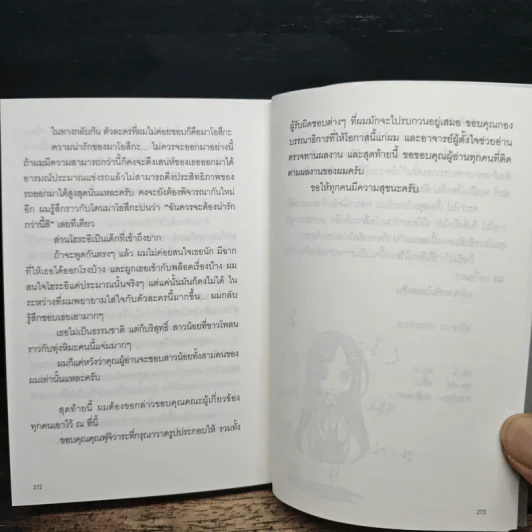 ในทางกลับกัน ตัวละครที่ผมไม่ค่อยชอบก็คือมาโอสึกะ
ความน่ารักของมาโอสึกะ... ไม่ควรจะออกมาอย่างนี้
ถ้าผมมีความสามารถกว่านี้ก็คงจะดึงเสน่ห์ของเธอออกมาได้
อารมณ์ประมาณแข่งรถแล้วไม่สามารถดึงประสิทธิภาพของ
รถออกมาได้สูงสุดนั่นแหละครับ คงจะยังต้องพิจารณากันใหม่
อีก ผมรู้สึกราวกับโดนมาโอสึกะบ่นว่า "ฉันควรจะต้องน่ารัก
กว่านี้สิ" เลยทีเดียว
ส่วนโฮระอิเป็นเด็กที่เข้าถึงยาก
ถ้าจะพูดกันตรงๆ แล้ว ผมไม่ค่อยสนใจเธอนัก มีฉาก
ที่ให้เธอได้ออกโรงบ้าง และผูกเธอเข้ากับพล็อตเรื่องบ้าง ผม
สนใจโฮระอิแค่ประมาณนั้นจริงๆ แต่แค่นั้นมันก็คงไม่ได้ ใน
ระหว่างที่ผมพยายามใส่ใจกับตัวละครนี้มากขึ้น... ผมกลับ
รู้สึกชอบเธอเอามากๆ
เธอไม่เป็นธรรมชาติ แต่ก็บริสุทธิ์ สาวน้อยที่ขาวโพลน
ราวกับทุ่งหิมะคนนี้แจ่มมากๆ
ผมก็แค่หวังว่าคุณผู้อ่านจะชอบสาวน้อยทั้งสามคนของ
ผมเท่านั้นแหละครับ
สุดท้ายนี้ ผมต้องขอกล่าวขอบคุณคณะผู้เกี่ยวข้อง
ทุกคนเอาไว้ ณ ที่นี้
ขอบคุณคุณฟุจิวาระที่กรุณาวาดรูปประกอบให้ รวมทั้ง
272
ผู้รับผิดชอบต่างๆ ที่ผมมักจะไปรบกวนอยู่เสมอ ขอบคุณกอง
บรรณาธิการที่ให้โอกาสนี้แก่ผม และอาจารย์ผู้ตั้งใจช่วยอ่าน
ตรวจทานผลงาน และสุดท้ายนี้ ขอขอบคุณผู้อ่านทุกคนที่ติด
ตามผลงานของผมครับ
ขอให้ทุกคนมีความสุขนะครับ
273